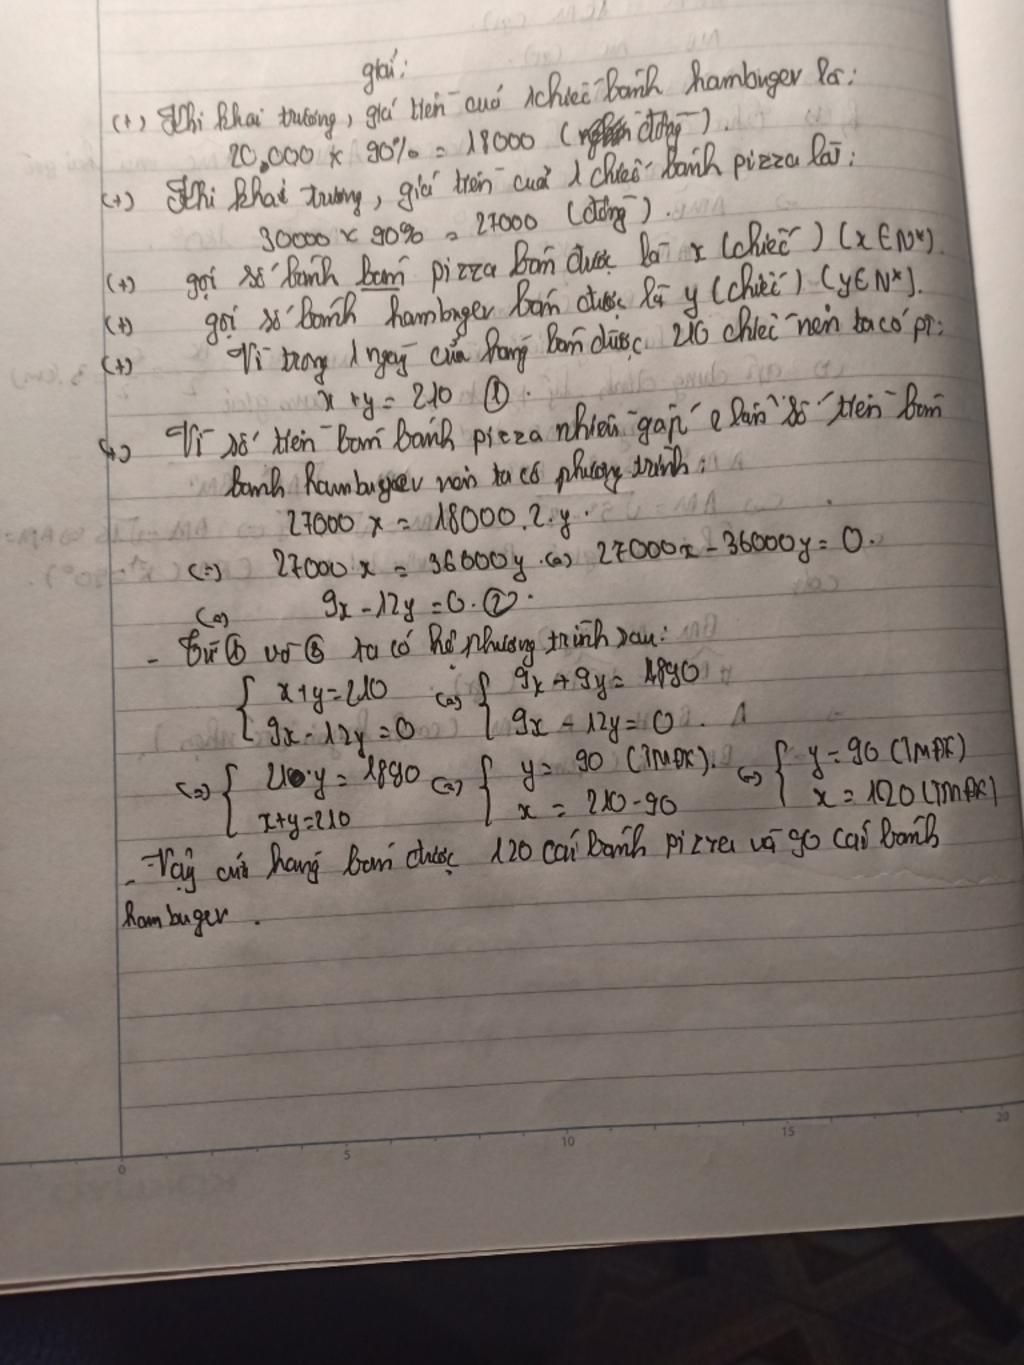 giải:
(+) Khi khai trương, giá tiền của 1 chiếc bánh hambuger là:
20.000 x 90% = 18000 (đồng).
(+) Khi khai trương, giá tiền của 1 chiếc bánh pizza là:
30000 x 90% = 27000 (đồng).
(+) gọi số bánh bán pizza bán được là x (chiếc) (x ∈ N*).
(+) gọi số bánh hambuger bán được là y (chiếc) (y ∈ N*).
(+) Vì trong 1 ngày cửa hàng bán được 210 chiếc nên ta có pt:
x + y = 210 ①.
(+) Vì số tiền bán bánh pizza nhiều gấp 2 lần số tiền bán
bánh hambuger nên ta có phương trình:
27000 x = 18000.2.y.
(=) 27000 x = 36000y (=) 27000x - 36000y = 0.
(=) 9x - 12y = 0. ②.
- Từ ① và ② ta có hệ phương trình sau:
{ x+y = 210 (=) { 9x + 9y = 1890
{ 9x - 12y = 0 { 9x - 12y = 0.
(=) { 21y = 1890 (=) { y = 90 (TMĐK). (=) { y = 90 (TMĐK)
{ x+y = 210 { x = 210-90 { x = 120 (TMĐK)
- Vậy cửa hàng bán được 120 cái bánh pizza và 90 cái bánh
hambuger.
0 5 10 15 20